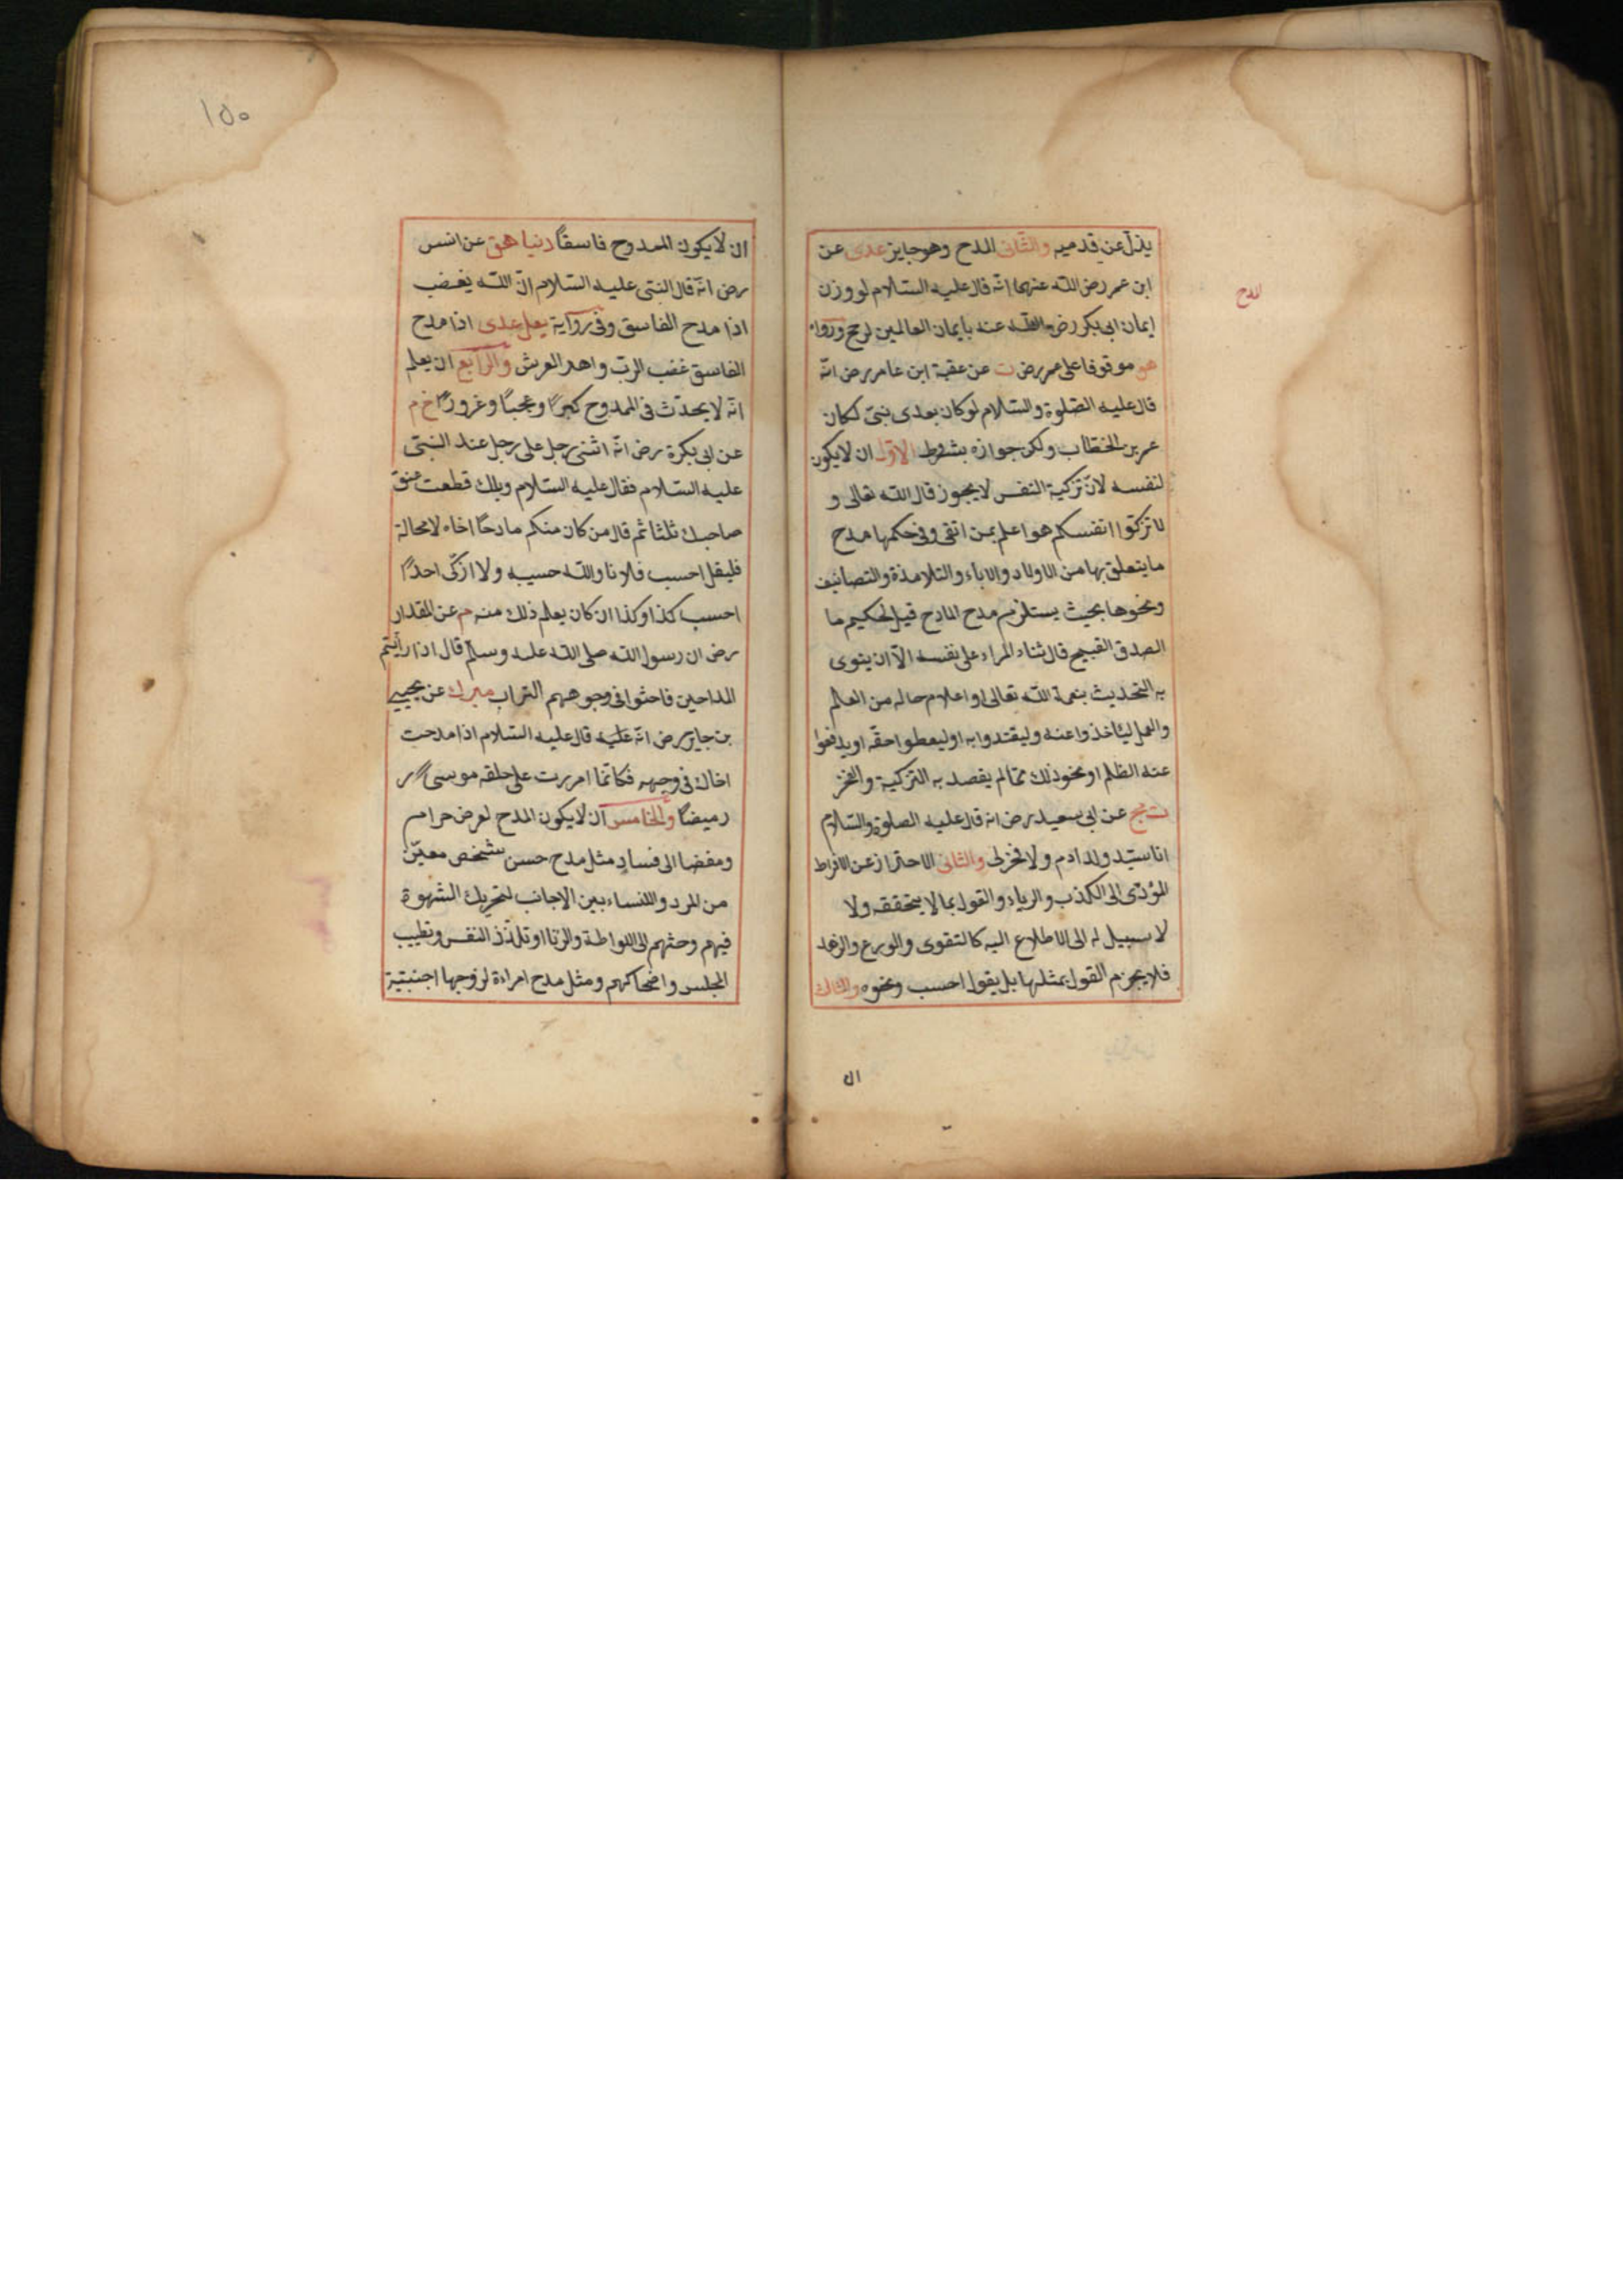 يذل عن قدميه والثانى المدح وهو جايز عدى عن
ابن عمر رضى الله عنهما انه قال عليه السلام لو وزن
ايمان ابى بكر رضى الله عنه بايمان العالمين لرجح ورواه
هق موقوفا على عمر رض ت عن عقبة ابن عامر رض انه
قال عليه الصلوة والسلام لو كان بعدى نبى لكان
عمر بن الخطاب ولكن جوازه بشروط الاول ان لا يكون
لنفسه لان تزكية النفس لا يجوز قال الله تعالى و
لا تزكوا انفسكم هو اعلم بمن اتقى وفى حكمها مدح
ما يتعلق بها من الاولاد والاباء والتلامذة والتصانيف
ونحوها بحيث يستلزم مدح المادح قيل لحكيم ما
الصدق القبيح قال ثناء المراء على نفسه الا ان ينوى
به التحديث بنعمة الله تعالى او اعلام حاله من العلم
والعمل ليئاخذوا عنه وليقتدوا به او ليعطوا حقه او يدفعوا
عنه الظلم او نحو ذلك مما لم يقصد به التزكية والفخر
ت مج عن ابى سعيد رض انه قال عليه الصلوة والسلام
انا سيد ولد ادم ولا فخر لى والثانى الاحتراز عن الافراط
المؤدى الى الكذب والرياء والقول بما لا يتحققه ولا
لا سبيل له الى الاطلاع اليه كالتقوى والورع والزهد
فلا يجزم القول بمثلها بل يقول احسب ونحوه والثالث
المدح
ان
١٥٠
ان لا يكون الممدوح فاسقا دنيا هق عن انس
رض انه قال النبى عليه السلام ان الله يغضب
اذا مدح الفاسق وفى رواية يعلى عدى اذا مدح
الفاسق غضب الرب واهد العرش والرابع ان يعلم
انه لا يحدث فى الممدوح كبرًا وعجبًا وغرورًا خ م
عن ابى بكرة رض انه اثنى رجل على رجل عند النبى
عليه السلام فقال عليه السلام ويلك قطعت عنق
صاحبك ثلثا ثم قال من كان منكم مادحًا اخاه لا محالة
فليقل احسب فلانا والله حسيبه ولا ازكى احدًا
احسب كذا وكذا ان كان يعلم ذلك منه م عن المقدار
رض ان رسول الله صلى الله عليه وسلم قال اذا رأيتم
المداحين فاحثوا فى وجوههم التراب مبرك عن يحيى
بن جابر رض انه عليه قال عليه السلام اذا مدحت
اخاك فى وجهه فكانما امررت على حلقه موسى
رميضًا والخامس ان لا يكون المدح لعرض حرام
ومفضا الى فساد مثل مدح حسن شخص معين
من المرد والنساء بين الاجانب لتحريك الشهوة
فيهم وحثهم الى اللواطة والزنا او تلذذ النفس وتطييب
المجلس واضحاكهم ومثل مدح امراءة لزوجها اجنبية